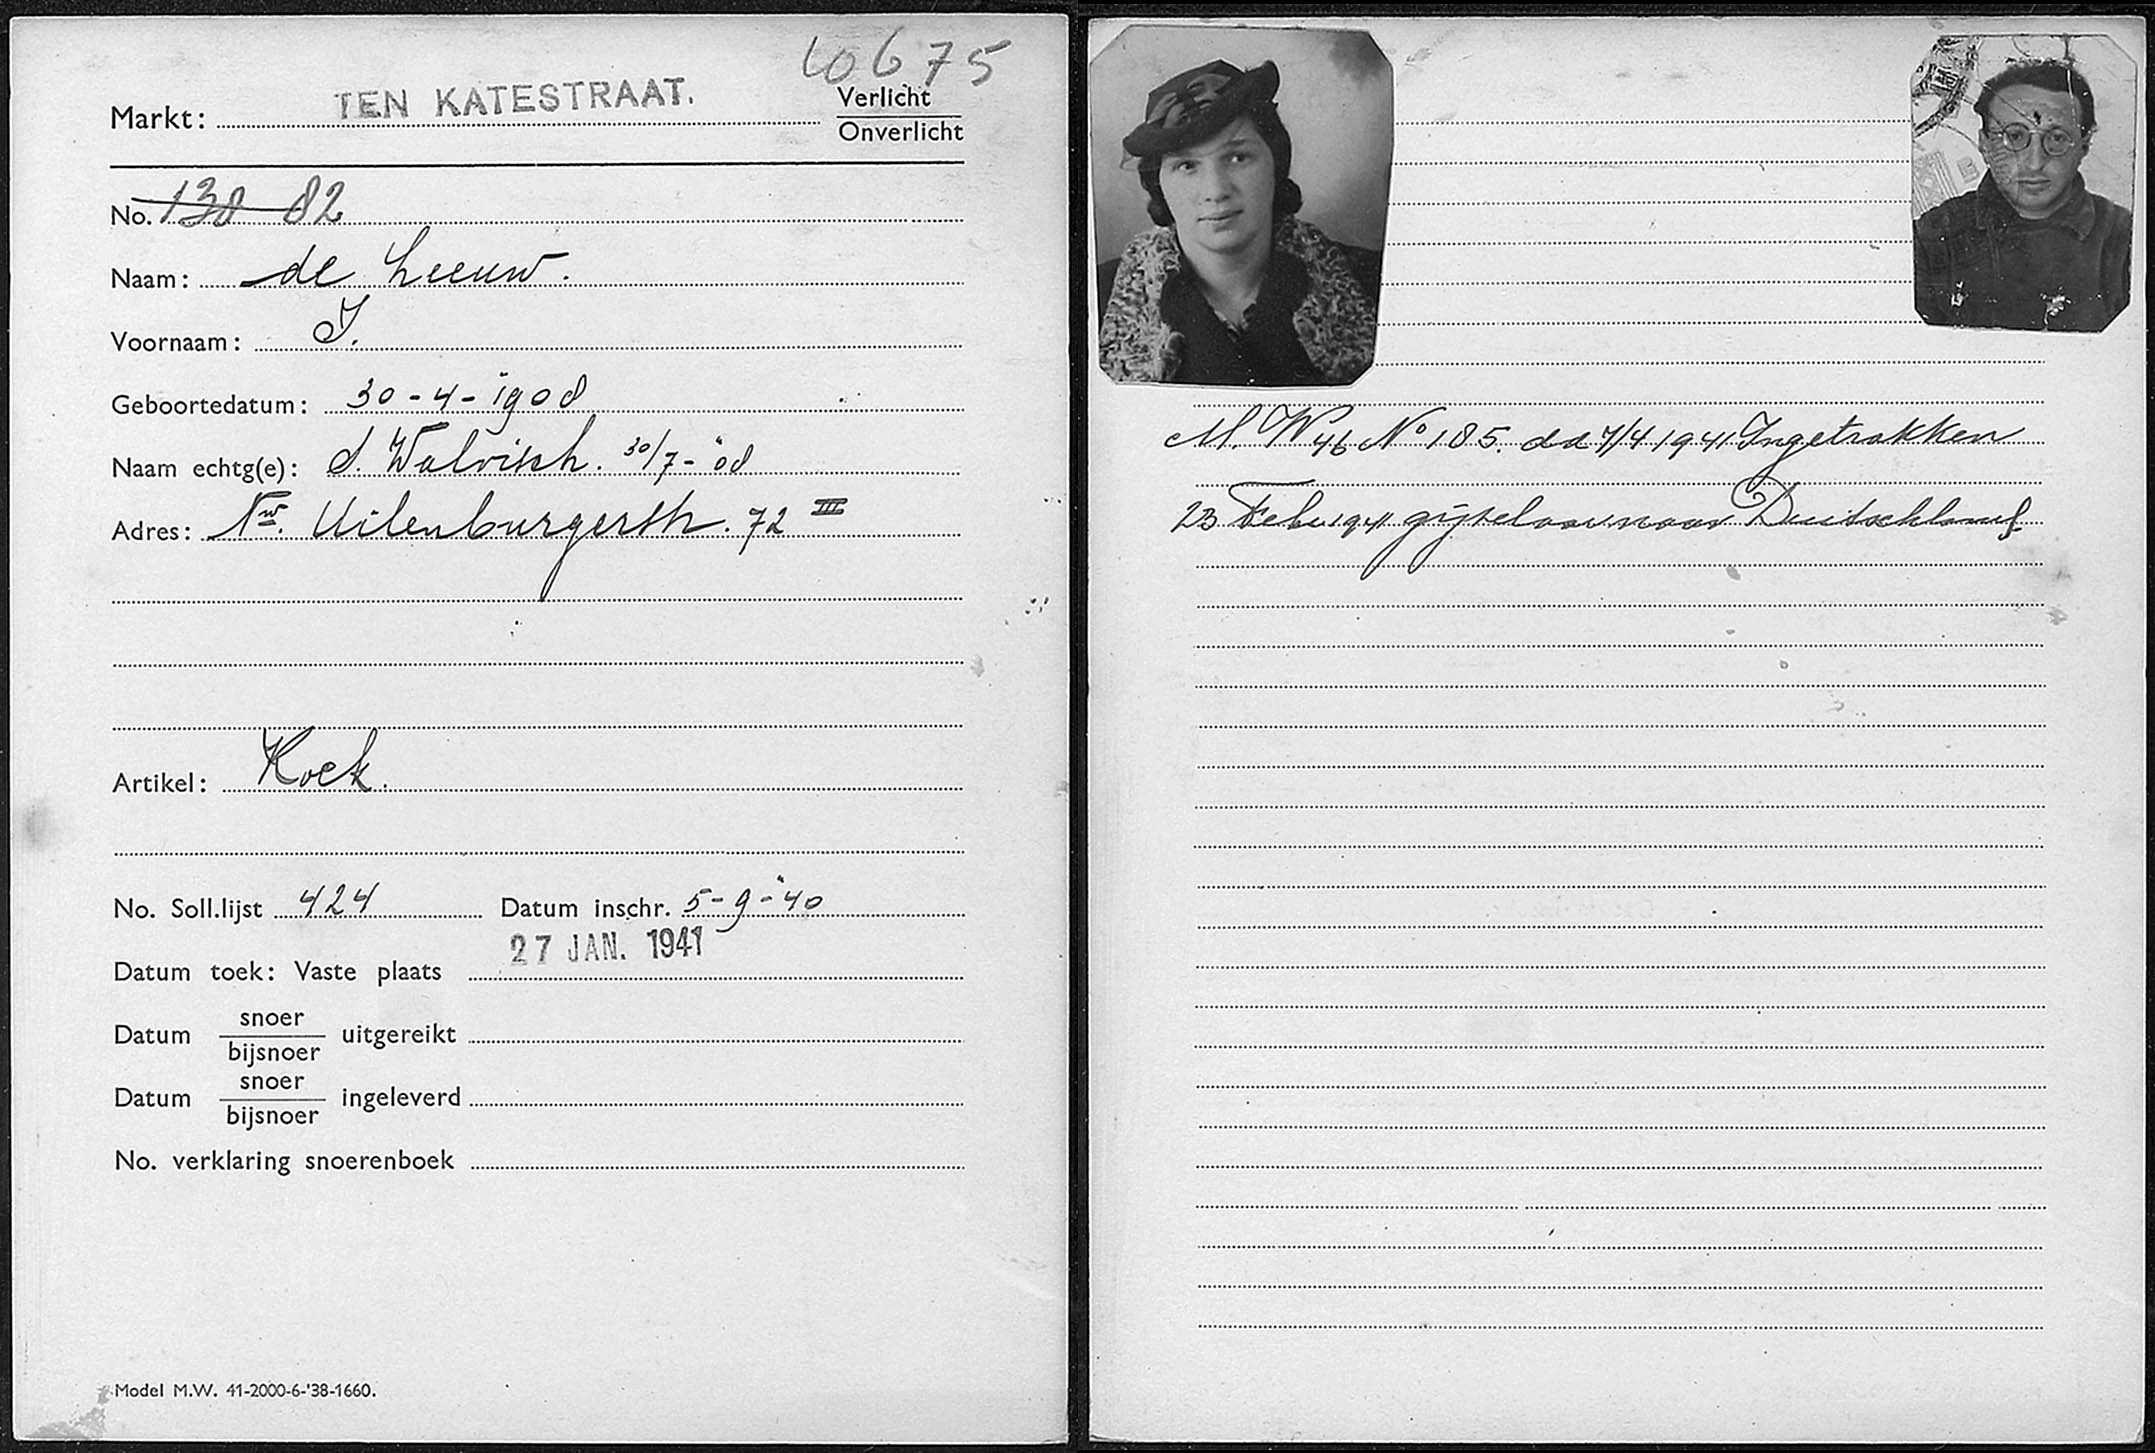 10675
Markt: TEN KATESTRAAT. Verlicht
Onverlicht
No. 138 82
Naam: de Leeuw.
Voornaam: I.
Geboortedatum: 30-4-1908
Naam echtg(e): S. Walvisch. 30/7-'08
Adres: Nw. Uilenburgerstr. 72 III
Artikel: Koek.
No. Soll.lijst 424 Datum inschr. 5-9-'40
27 JAN. 1941
Datum toek: Vaste plaats
Datum snoer/bijsnoer uitgereikt
Datum snoer/bijsnoer ingeleverd
No. verklaring snoerenboek
Model M.W. 41-2000-6-'38-1660.
M.W 46 No 185. dd 7/4 1941 Ingetrokken
23 Febr 1941 gijzelaar naar Duitschland